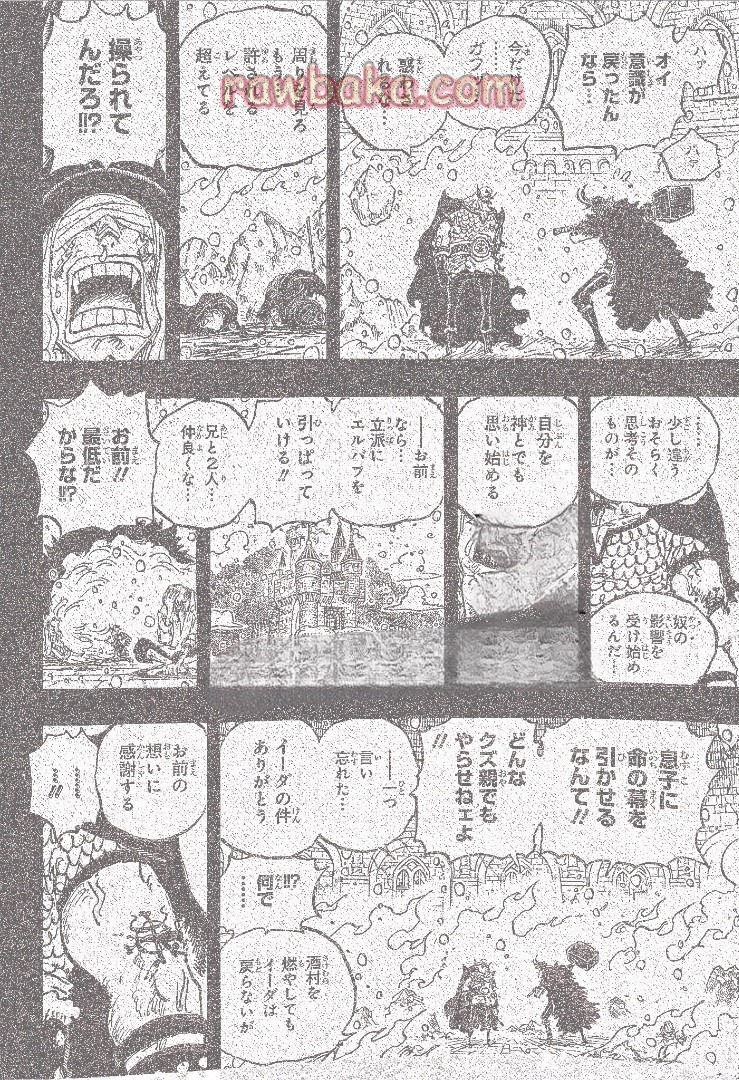 ハァ
ハァ
オイ
意識が
戻ったん
なら…
周り
超えてる
操られて
んだろ!?
……
少し違う
おそらく
思考その
ものが…
奴の
影響を
受け始め
るんだ…
自分を
神とでも
思い始める
──お前
なら…
立派に
エルバフを
引っぱって
いける!!
兄と2人…
仲良くな…
お前!!
最低だ
からな!?
息子に
命の幕を
引かせる
なんて!!
どんな
クズ親でも
やらせねェよ
!!
──一つ
言い
忘れた…
イーダの件
ありがとう
!!?
何で
……
酒村を
燃やしても
イーダは
戻らないが
お前の
想いに
感謝する
……!!
rawbaka.com